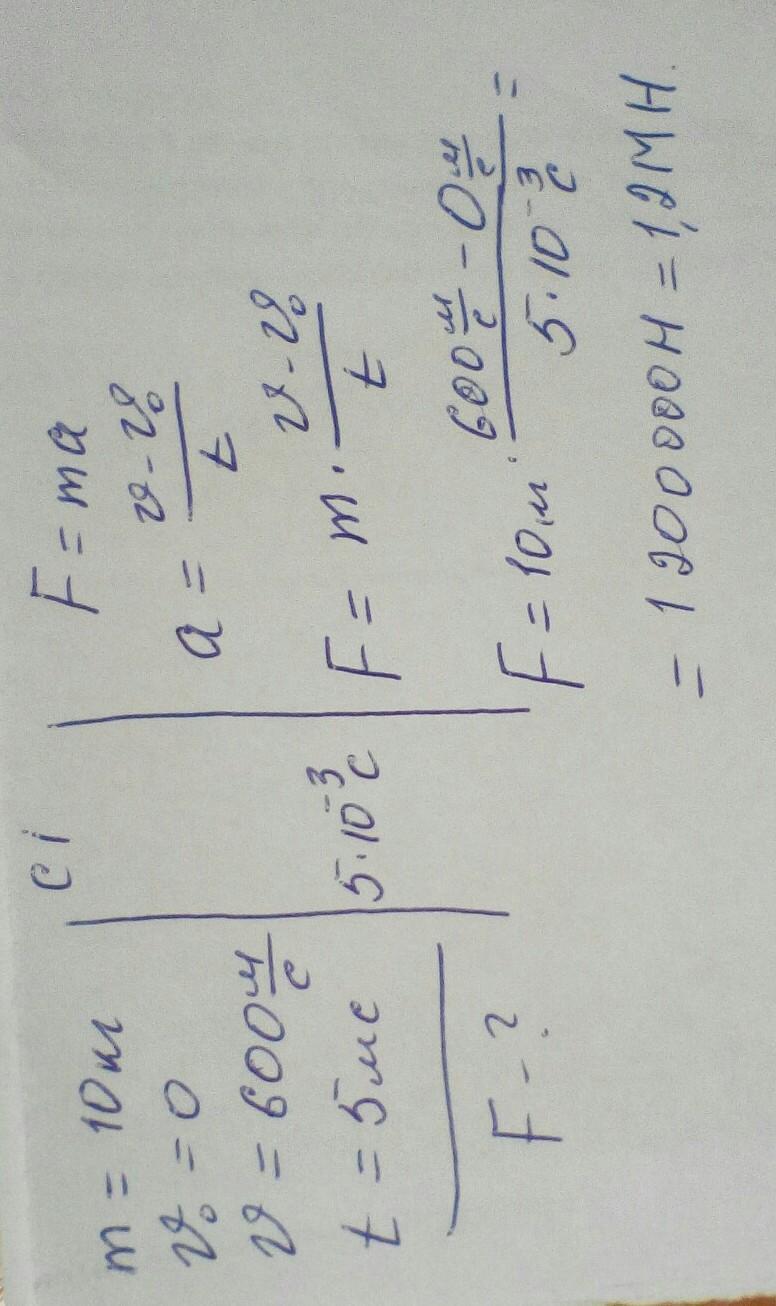 m = 10кг
v₀ = 0
v = 600 м/с
t = 5мс
F - ?
сі
5·10⁻³с
F = ma
a = (v - v₀)/t
F = m · (v - v₀)/t
F = 10кг · (600 м/с - 0 м/с)/(5·10⁻³с) =
= 1200000Н = 1,2МН.